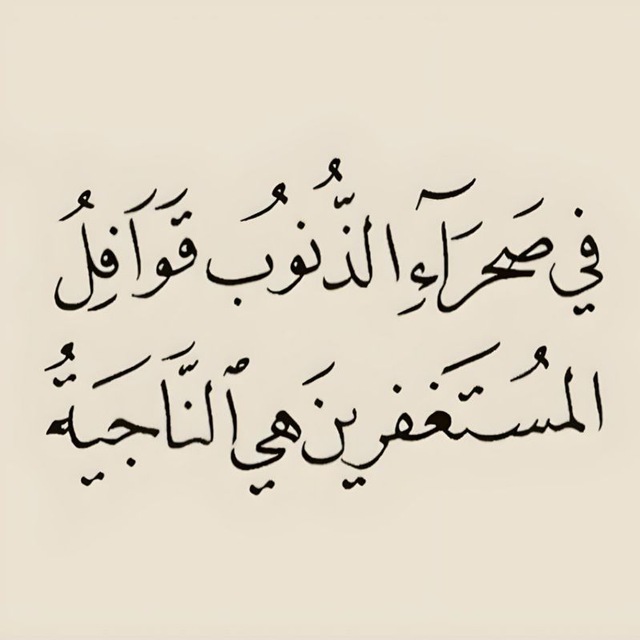 في صَحْرَآءِ الذُّنُوبُ قَوَافِلُ
المُسْتَغفرينَ هي ٱلنَّاجَيةُ